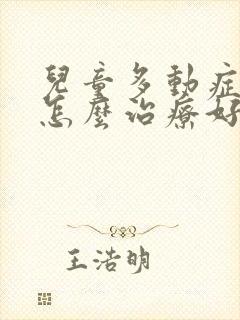 兒童多動症
怎麼治療好
王浩明